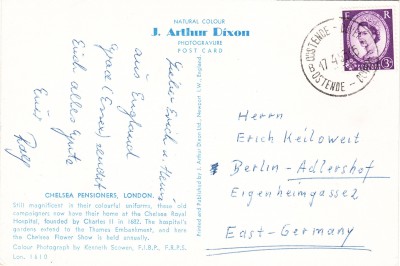 NATURAL COLOUR
J. Arthur Dixon
PHOTOGRAVURE
POST CARD
Lieber Erich u.
aus England
(Essex) sendet
Euch alles Gute
Euer
Ralf
CHELSEA PENSIONERS, LONDON.
Still magnificent in their colourful uniforms, these old
campaigners now have their home at the Chelsea Royal
Hospital, founded by Charles II in 1682. The hospital's
gardens extend to the Thames Embankment, and here
the Chelsea Flower Show is held annually.
Colour Photograph by Kenneth Scowen, F.I.B.P., F.R.P.S.
Lon. 1610
Printed and Published by J. Arthur Dixon Ltd., Newport I.W., England.
OOSTENDE -
B
17 4
OSTENDE -
E R
3D
Herrn
Erich Keiloweit
Berlin-Adlershof
Eigenheimgasse 2
East-Germany